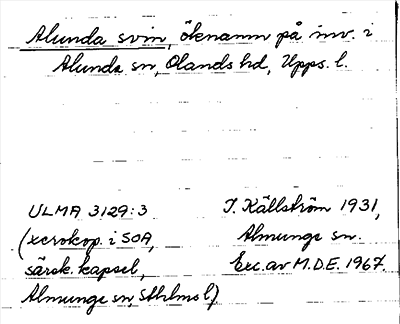 Alunda svin, öknamn på inv. i
Alunda sn, Olands hd, Upps. l.
ULMA 3129:3 T. Källström 1931,
(xerokop. i SOA, Almunge sn.
särsk. kapsel, Exc. av M.D.E. 1967.
Almunge sn, Sthlms l)